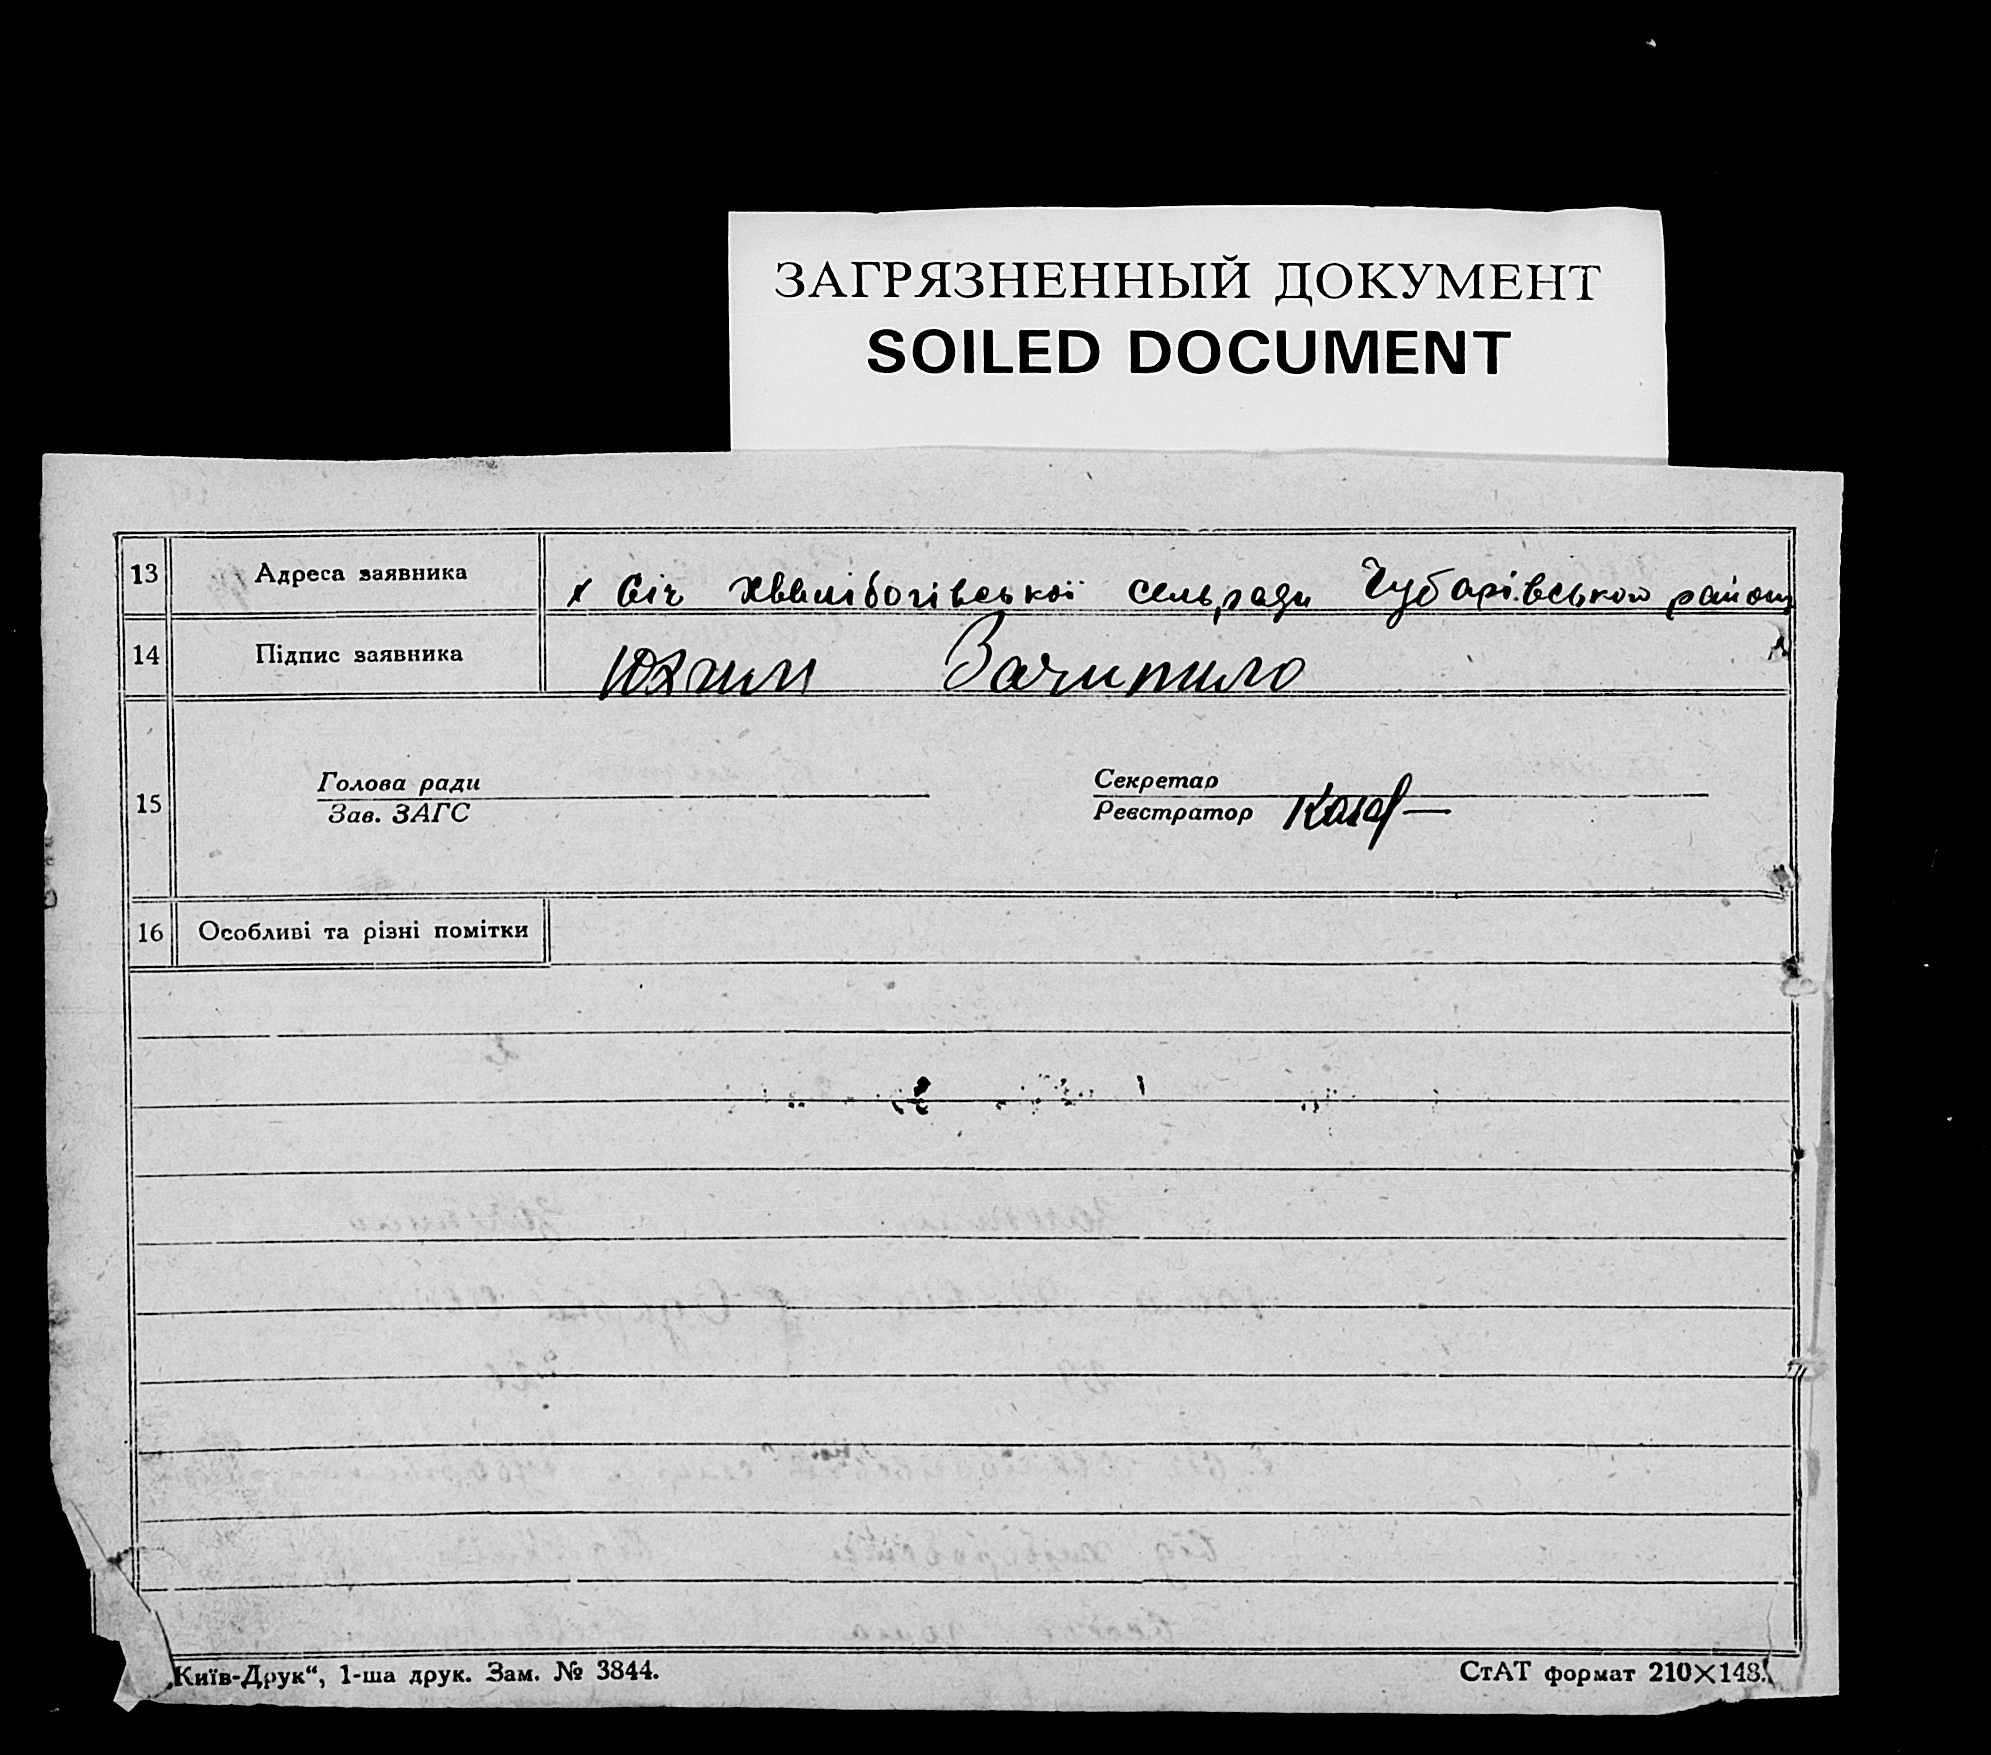 ЗАГРЯЗНЕННЫЙ ДОКУМЕНТ
SOILED DOCUMENT
13 Адреса заявника х Січ Хвалібогівської сельради Чубарівського району
14 Підпис заявника Юхим Зачипило
15 Голова ради
Зав. ЗАГС
Секретар
Реєстратор
16 Особливі та різні помітки
„Київ-Друк“, 1-ша друк. Зам. № 3844.
СтАТ формат 210×148.